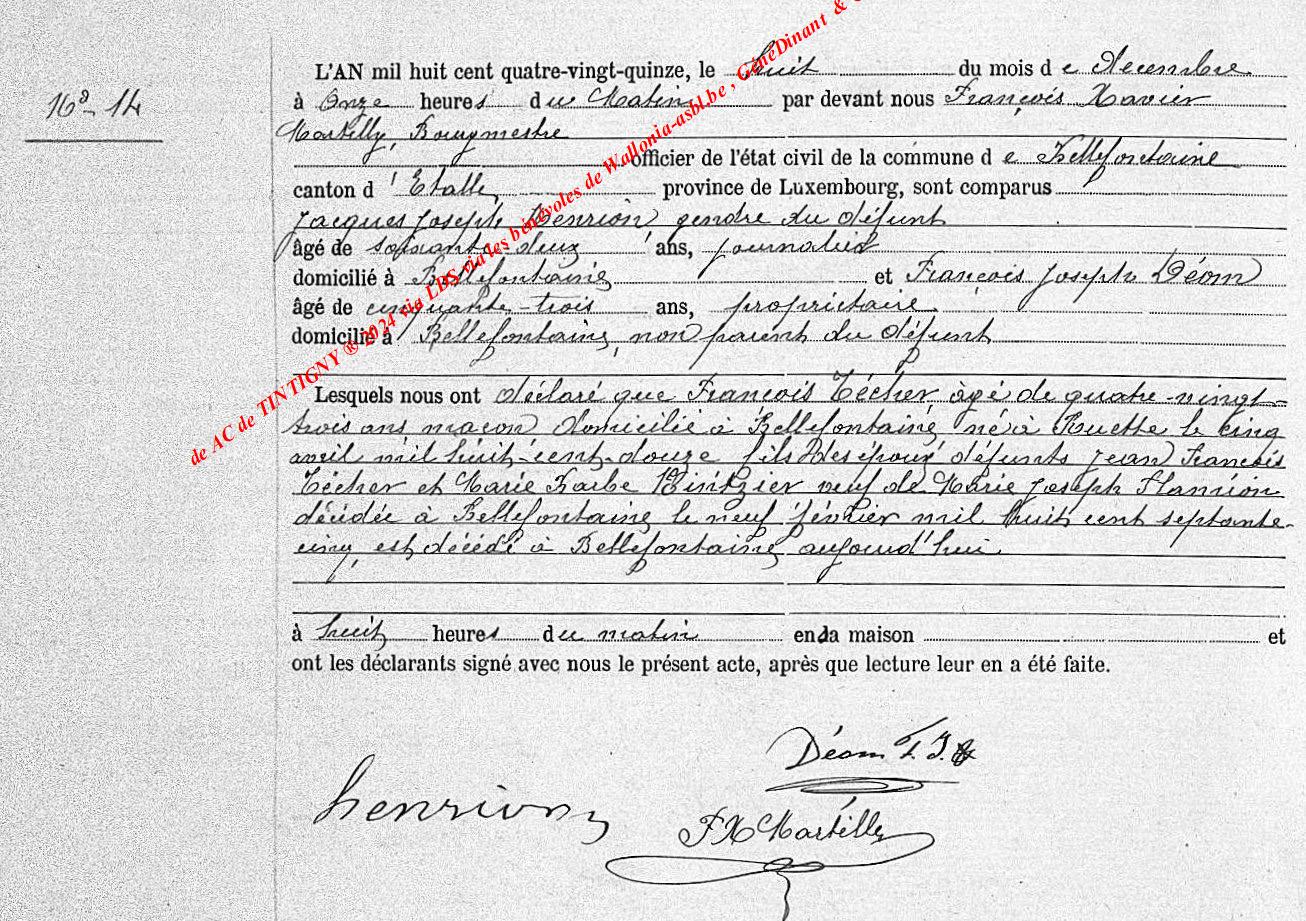 L'AN mil huit cent quatre-vingt-quinze, le huit du mois de Decembre
16d - 14
à Onze heures du Matin par devant nous François Xavier
Martilly, Bourgmestre
officier de l'état civil de la commune de Bellefontaine
canton d'Etalle province de Luxembourg, sont comparus
Jacques Joseph Henrion, gendre du défunt
âgé de soixante-deux ans, journalier
domicilié à Bellefontaine et François Joseph Déom
âgé de cinquante-trois ans, propriétaire
domicilié à Bellefontaine, non parent du défunt
Lesquels nous ont déclaré que François Técher, âgé de quatre-vingt-
trois ans maçon domicilié à Bellefontaine né à Ruette le cinq
avril mil huit-cent-douze fils des époux défunts Jean François
Técher et Marie Barbe veuf de Marie Joseph
décédée à Bellefontaine le neuf février mil huit cent septante-
cinq, est décédé à Bellefontaine aujourd'hui
à huit heures du matin en sa maison et
ont les déclarants signé avec nous le présent acte, après que lecture leur en a été faite.
Déom F. J.
henrion
F X Martilly
de AC de TINTIGNY ® 2024 via LDS via les bénévoles de Wallonia-asbl.be , GénéDinant &